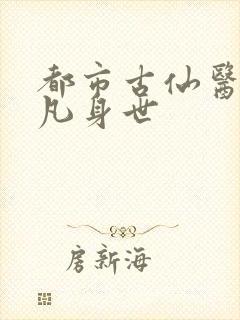 都市古仙醫
凡身世
房新海